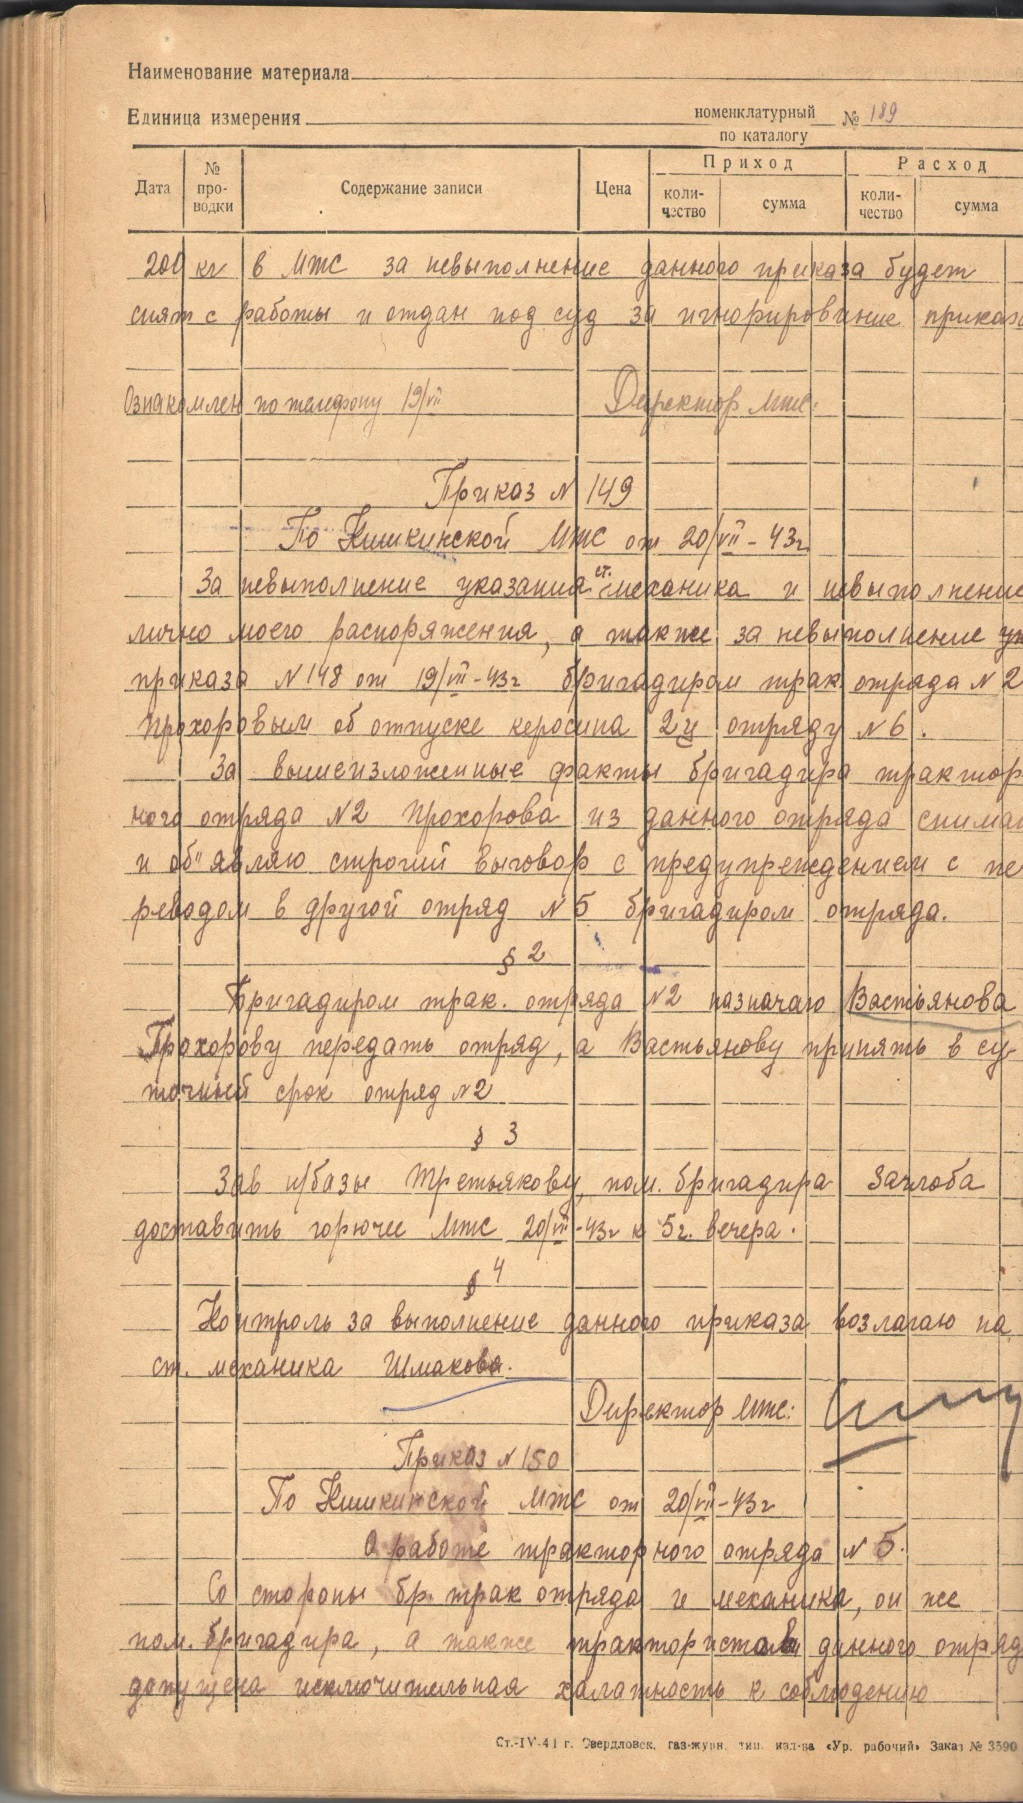 Наименование материала
Единица измерения номенклатурный по каталогу № 189
Дата № про-водки Содержание записи Цена Приход Расход
коли-чество сумма коли-чество сумма
200 кг в МТС за невыполнение данного приказа будет
снят с работы и отдан под суд за игнорирование приказа
Ознакомлен по телефону 19/VII Директор МТС:
Приказ N 149
По Кишкинской МТС от 20/VII-43г
За невыполнение указания ст. механика и невыполнение
лично моего распоряжения, а также за невыполнение
приказа N 148 от 19/VII-43г бригадиром трак. отряда N 2
Прохоровым об отпуске керосина 2ц отряду N 6.
За вышеизложенные факты бригадира трактор
ного отряда N2 Прохорова из данного отряда снимаю
и об"являю строгий выговор с предупреждением с пе
реводом в другой отряд N 5 бригадиром отряда.
§ 2
Бригадиром трак. отряда N2 назначаю Вастьянова
Прохорову передать отряд, а Вастьянову принять в су-
точный срок отряд N2
§ 3
Зав н/базы Третьякову, пом. бригадира
доставить горючее МТС 20/VII-43г к 5г. вечера.
§ 4
Контроль за выполнение данного приказа возлагаю на
ст. механика Шмакова.
Директор МТС:
Приказ N 150
По Кишкинской МТС от 20/VII-43г
О работе тракторного отряда N 5.
Со стороны бр. трак отряда и механика, он же
пом. бригадира, а также трактористов данного отряд
допущена исключительная халатность к соблюдению
Ст.-IV-41 г. Свердловск, газ-журн. тип. изд-ва «Ур. рабочий» Заказ № 3590